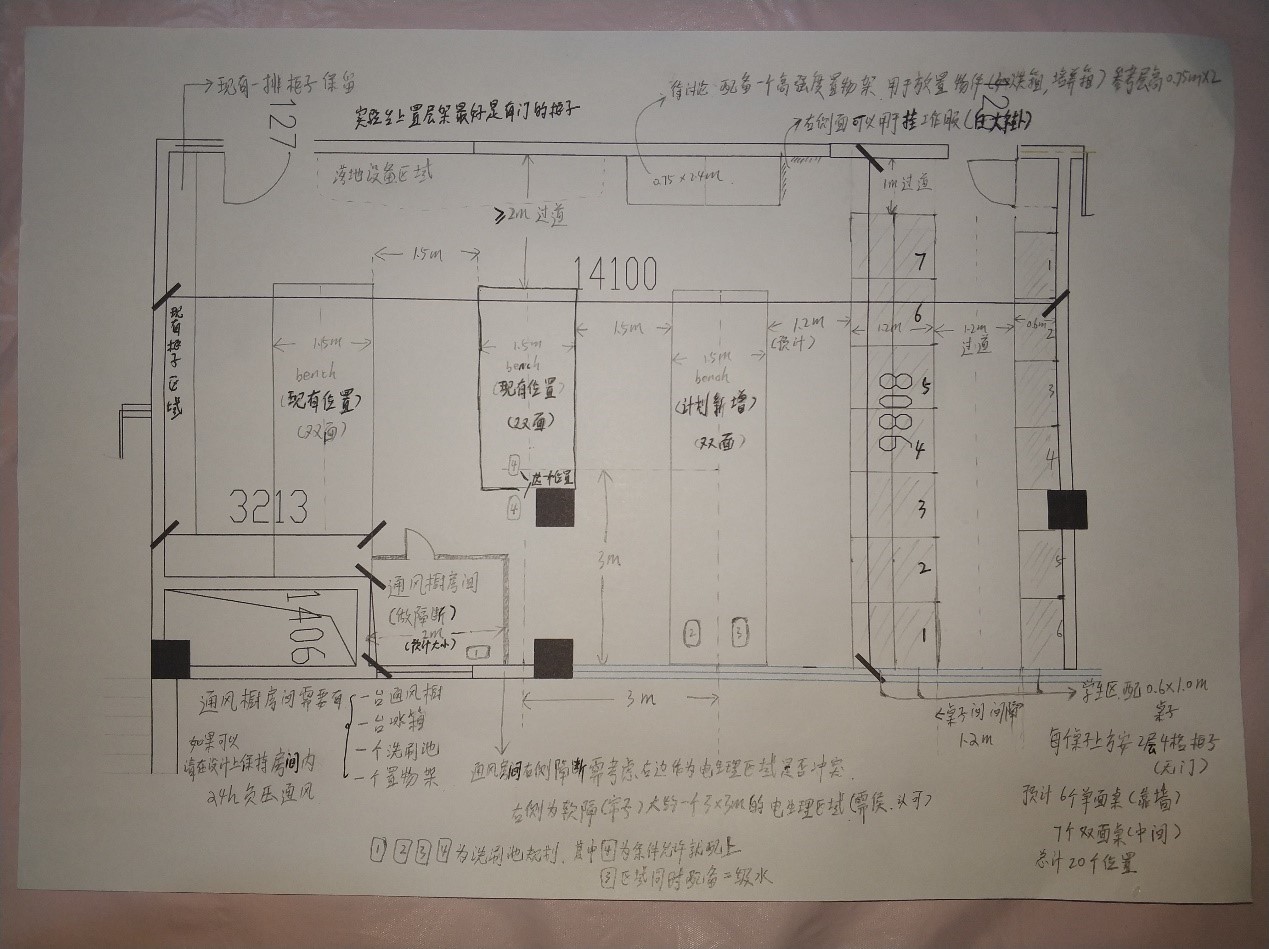 现有一排柜子保留
127
实验台上置层架最好是有门的柜子
待讨论 配备一个高强度置物架 用于放置物件(如烘箱,培养箱) 参考层高0.75m×2
右侧面可以用于挂工作服(白大褂)
落地设备区域
0.75×2.4m
1m过道
≥2m过道
1.5m
14100
现有柜子区域
1.5m
bench
(现有位置)
(双面)
1.5m
bench
(现有位置)
(双面)
4
选一个位置
4
1.5m
1.5m
bench
(计划新增)
(双面)
1.2m
(预计)
1.2m
1.2m
过道
0.6m
7
6
5
4
3
2
1
9808
1
2
3
4
5
6
3213
1406
通风橱房间
(做隔断)
2m
(预计大小)
1
3m
2
3
3m
通风橱房间需要有
一台通风橱
一台冰箱
一个洗刷池
一个置物架
如果可以
请在设计上保持房间内
24h负压通风
通风房间右侧隔断需考虑,右边作为电生理区域是否冲突.
右侧为软隔(帘子)大约一个3×3m的电生理区域(需侯 认可)
1 2 3 4 为洗刷池规划, 其中4为条件允许就配上
3区域同时配备二级水
桌子间间隔
1.2m
学生区,配0.6×1.0m
桌子
每个桌子上方安2层4格柜子
(无门)
预计6个单面桌(靠墙)
7个双面桌(中间)
总计20个位置